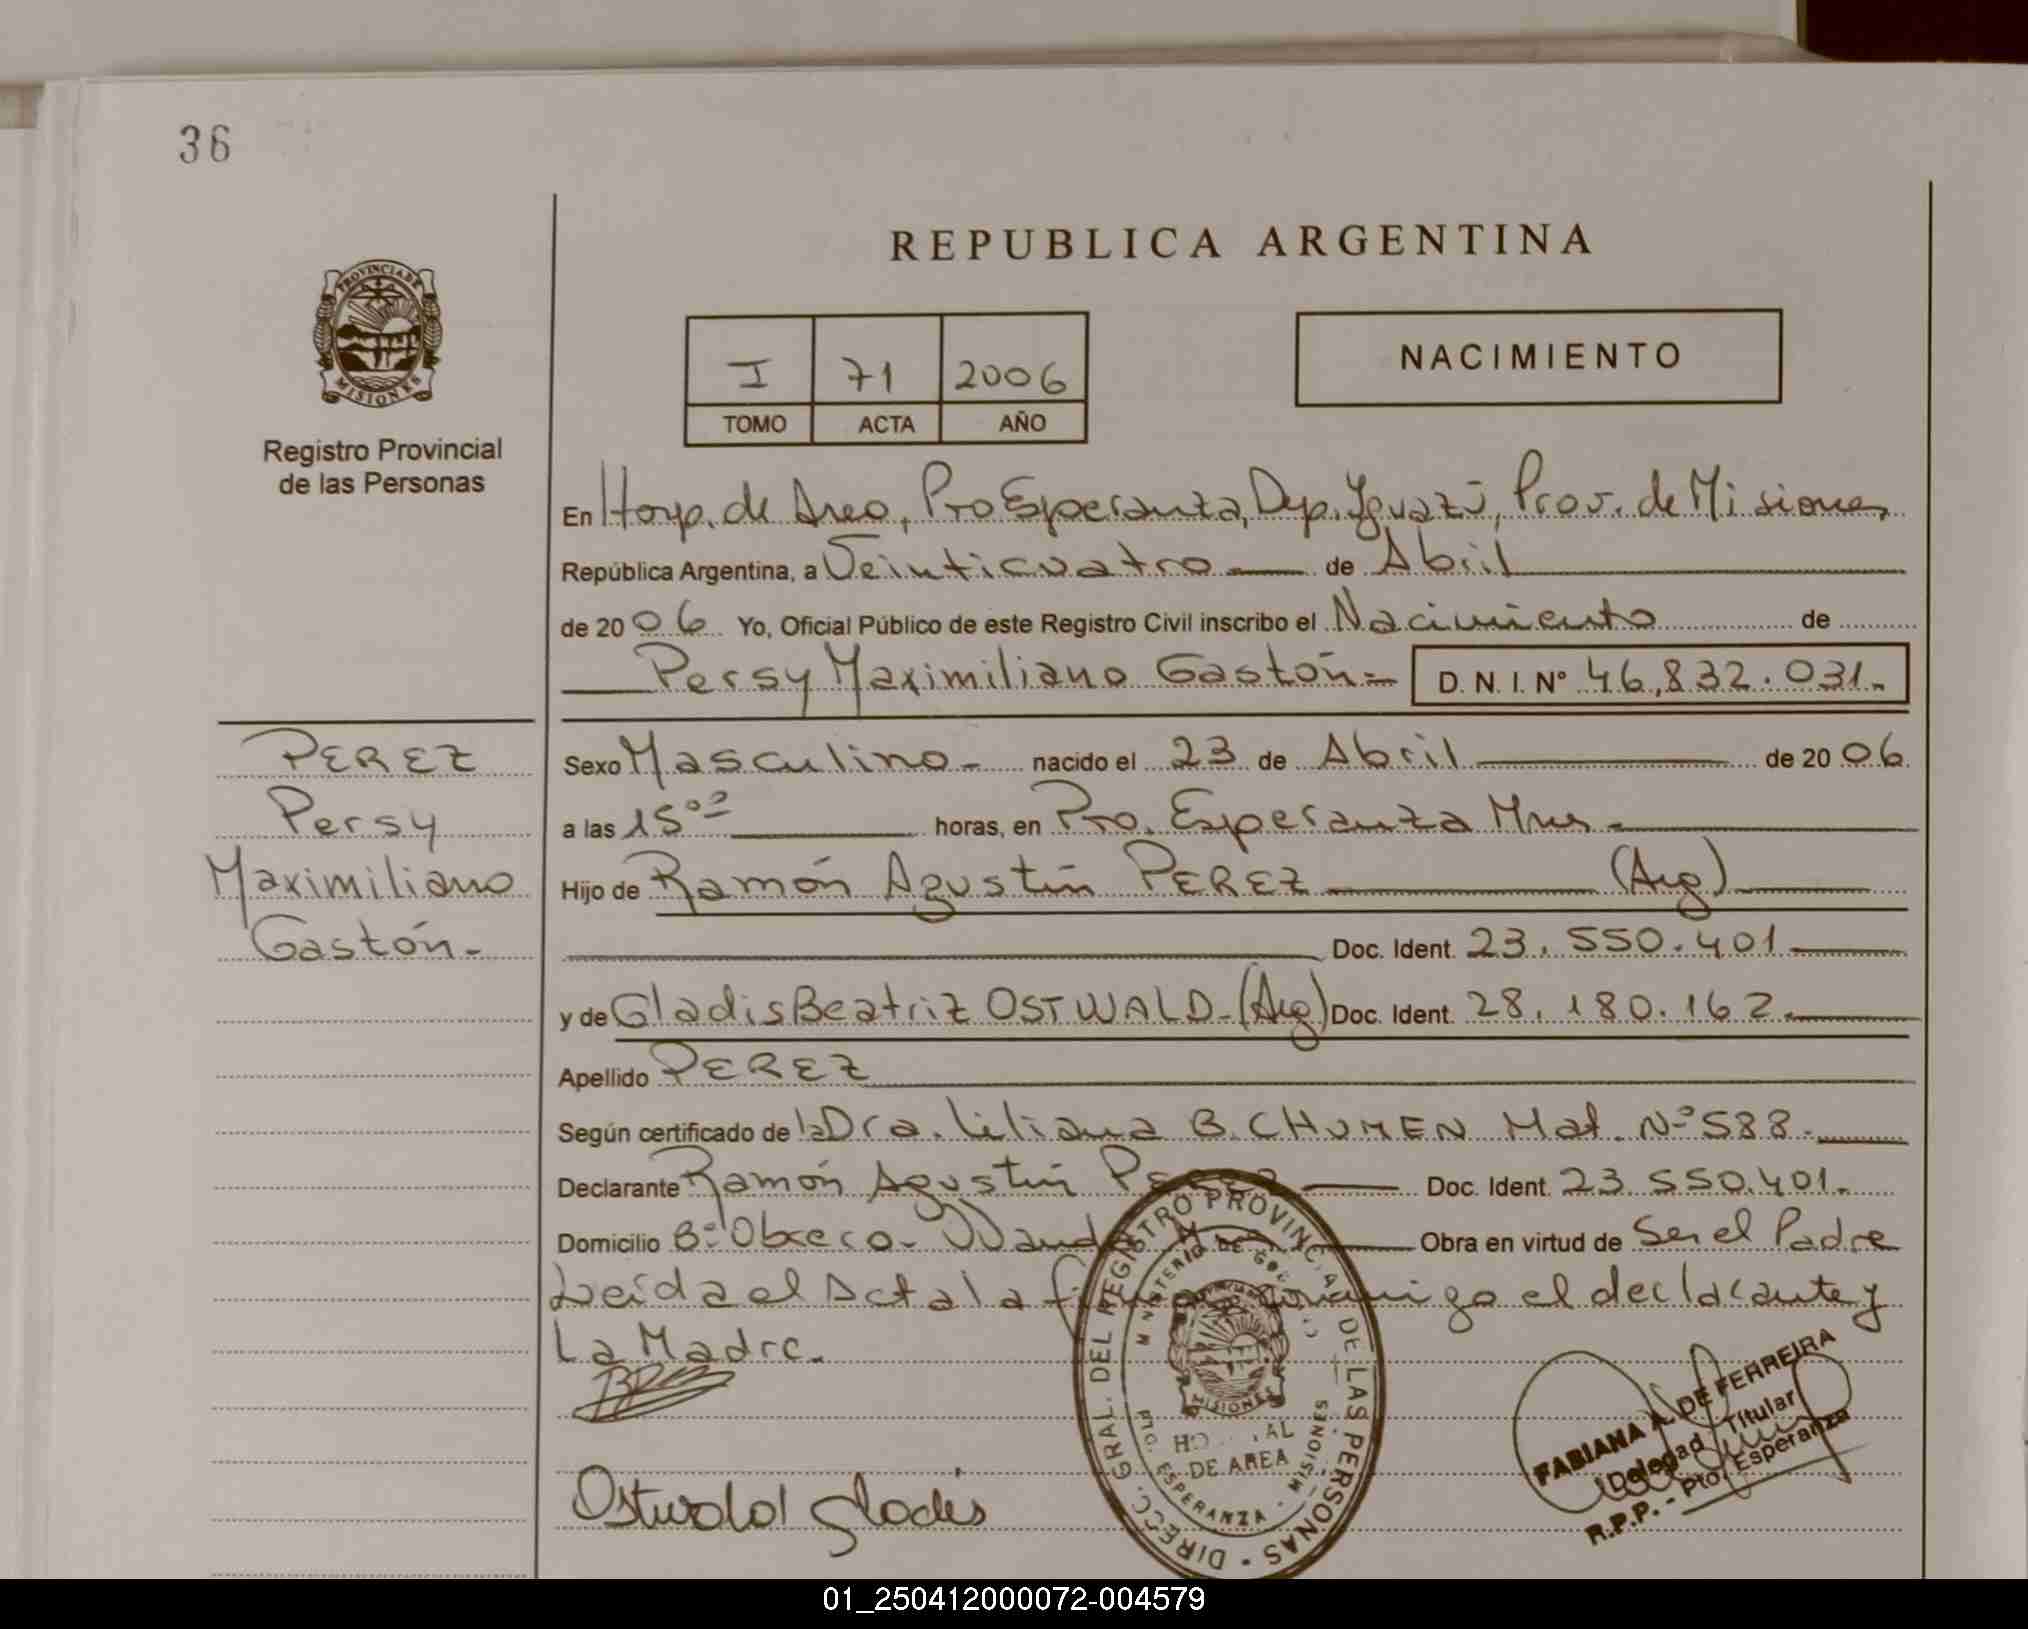 36
REPUBLICA ARGENTINA
PROVINCIA DE
MISIONES
Registro Provincial
de las Personas
I 71 2006
TOMO ACTA AÑO
NACIMIENTO
En Hosp. de Area, Pto Esperanza, Dep. Iguazú, Prov. de Misiones
República Argentina, a Veinticuatro de Abril
de 2006 Yo, Oficial Público de este Registro Civil inscribo el Nacimiento de
Persy Maximiliano Gastón- D. N. I. Nº 46.832.031.-
PEREZ
Persy
Maximiliano
Gastón.-
Sexo Masculino.- nacido el 23 de Abril de 2006.
a las 15ºº horas, en Pto. Esperanza Mnes.
Hijo de Ramón Agustín PEREZ (Arg)
Doc. Ident. 23.550.401
y de Gladis Beatriz OSTWALD.- (Arg) Doc. Ident. 28.180.162.
Apellido PEREZ
Según certificado de la Dra. Liliana B. CHUMEN Mat. Nº 588.
Declarante Ramón Agustín PEREZ Doc. Ident. 23.550.401.-
Domicilio Bº Obrero. Wand Obra en virtud de Ser el Padre
Leída el Acta la conmigo el declarante y
La Madre.
Ostwald Gladis
DIRECC. GRAL. DEL REGISTRO PROVINCIAL DE LAS PERSONAS
MINISTERIO DE GOB
MISIONES
HO AL
DE AREA
PTO. ESPERANZA - MISIONES
FABIANA A. DE FERREIRA
Delegad Titular
R.P.P. - Pto. Esperanza
01_250412000072-004579